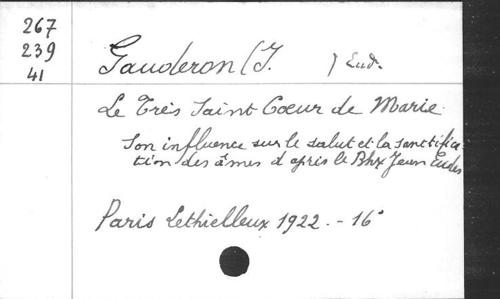 267
239
41
Gauderon (J. ) Eud.
Le Très Saint Cœur de Marie.
Son influence sur le salut et la sanctifica-
tion des âmes d'après le Bhx Jean Eudes
Paris Lethielleux 1922. - 16°